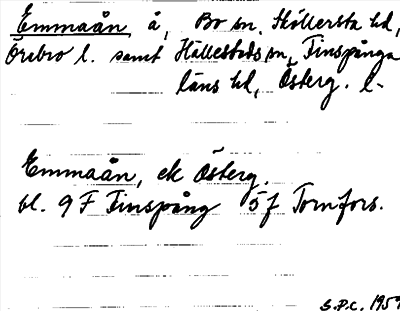 Emmaån å, Bo sn, Sköllersta hd,
Örebro l. samt Hällestads sn, Finspånga
läns hd, Österg. l.
Emmaån, ek Österg.
bl. 9 F Finspång 5 f Tomfors.
S.P.C. 1959